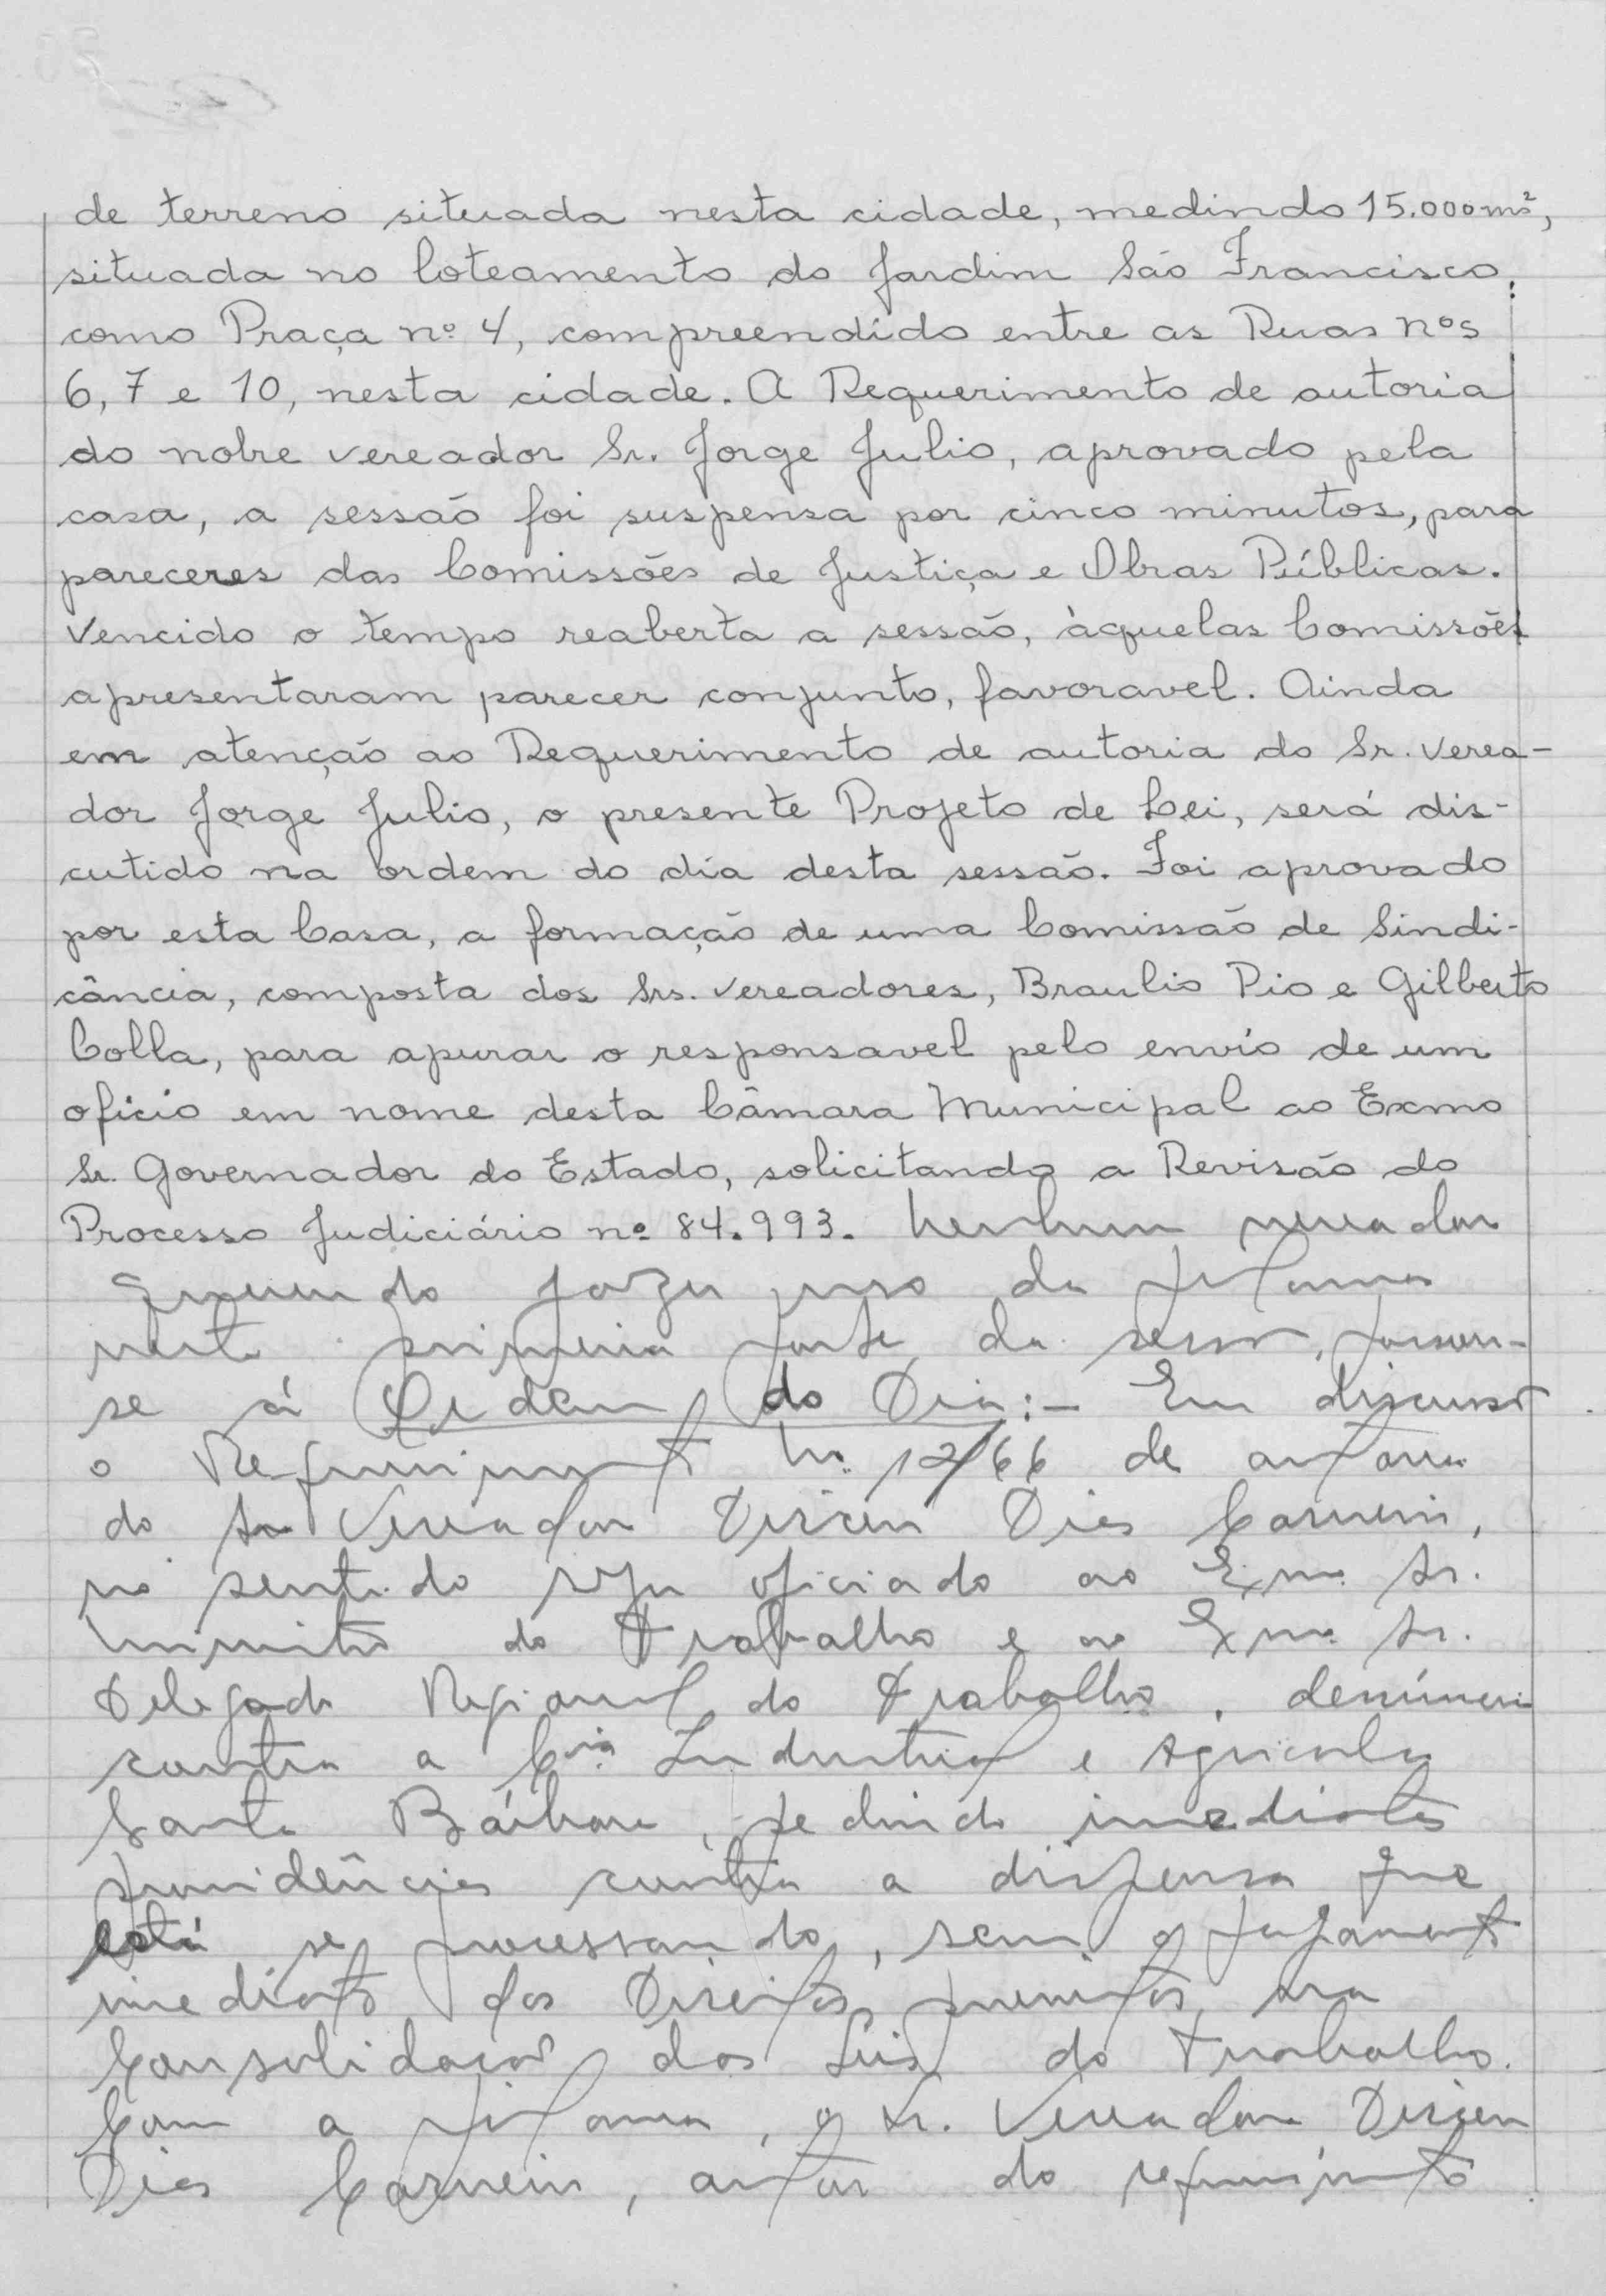 de terreno situada nesta cidade, medindo 15.000 m²,
situada no loteamento do Jardim São Francisco,
como Praça nº 4, compreendido entre as Ruas nºs
6, 7 e 10, nesta cidade. A Requerimento de autoria
do nobre vereador Sr. Jorge Julio, aprovado pela
casa, a sessão foi suspensa por cinco minutos, para
pareceres das Comissões de Justiça e Obras Públicas.
Vencido o tempo reaberta a sessão, àquelas Comissões
apresentaram parecer conjunto, favoravel. Ainda
em atenção ao Requerimento de autoria do Sr. Verea-
dor Jorge Julio, o presente Projeto de Lei, será dis-
cutido na ordem do dia desta sessão. Foi aprovado
por esta Casa, a formação de uma Comissão de Sindi-
cância, composta dos Srs. Vereadores, Braulio Pio e Gilberto
Colla, para apurar o responsavel pelo envio de um
oficio em nome desta Câmara Municipal ao Exmo
Sr. Governador do Estado, solicitando a Revisão do
Processo Judiciário nº 84.993. Nenhum vereador
querendo fazer uso da tribuna
nesta primeira parte da sessão, passou-
se á Ordem do Dia:- Em discussão
o Requerimento nº 12/66 de autoria
do Sr Vereador Dirceu Dias Carneiro,
no sentido seja oficiado ao Exmo. Sr.
Ministro do Trabalho e ao Exmo. Sr.
Delegado Regional do Trabalho, denúncia
contra a Cia. Industrial e Agricola
Santa Bárbara, pedindo imediatas
providências contra a dispensa que
está se processando, sem o pagamento
imediato dos Direitos previstos na
Consolidação das Leis do Trabalho.
Com a tribuna, o Sr. Vereador Dirceu
Dias Carneiro, autor do requerimento